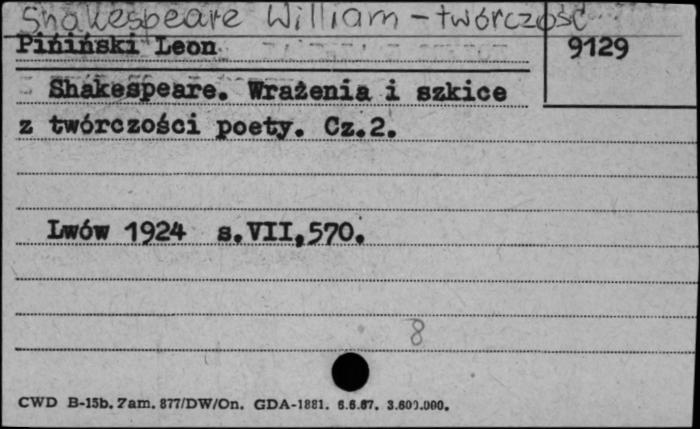 Shakespeare William - twórczość
Piniński Leon
9129
Shakespeare. Wrażenia i szkice
z twórczości poety. Cz.2.
Lwów 1924 s.VII,570.
8
CWD B-15b. Zam. 877/DW/On. GDA-1881. 6.6.67. 3.600.000.